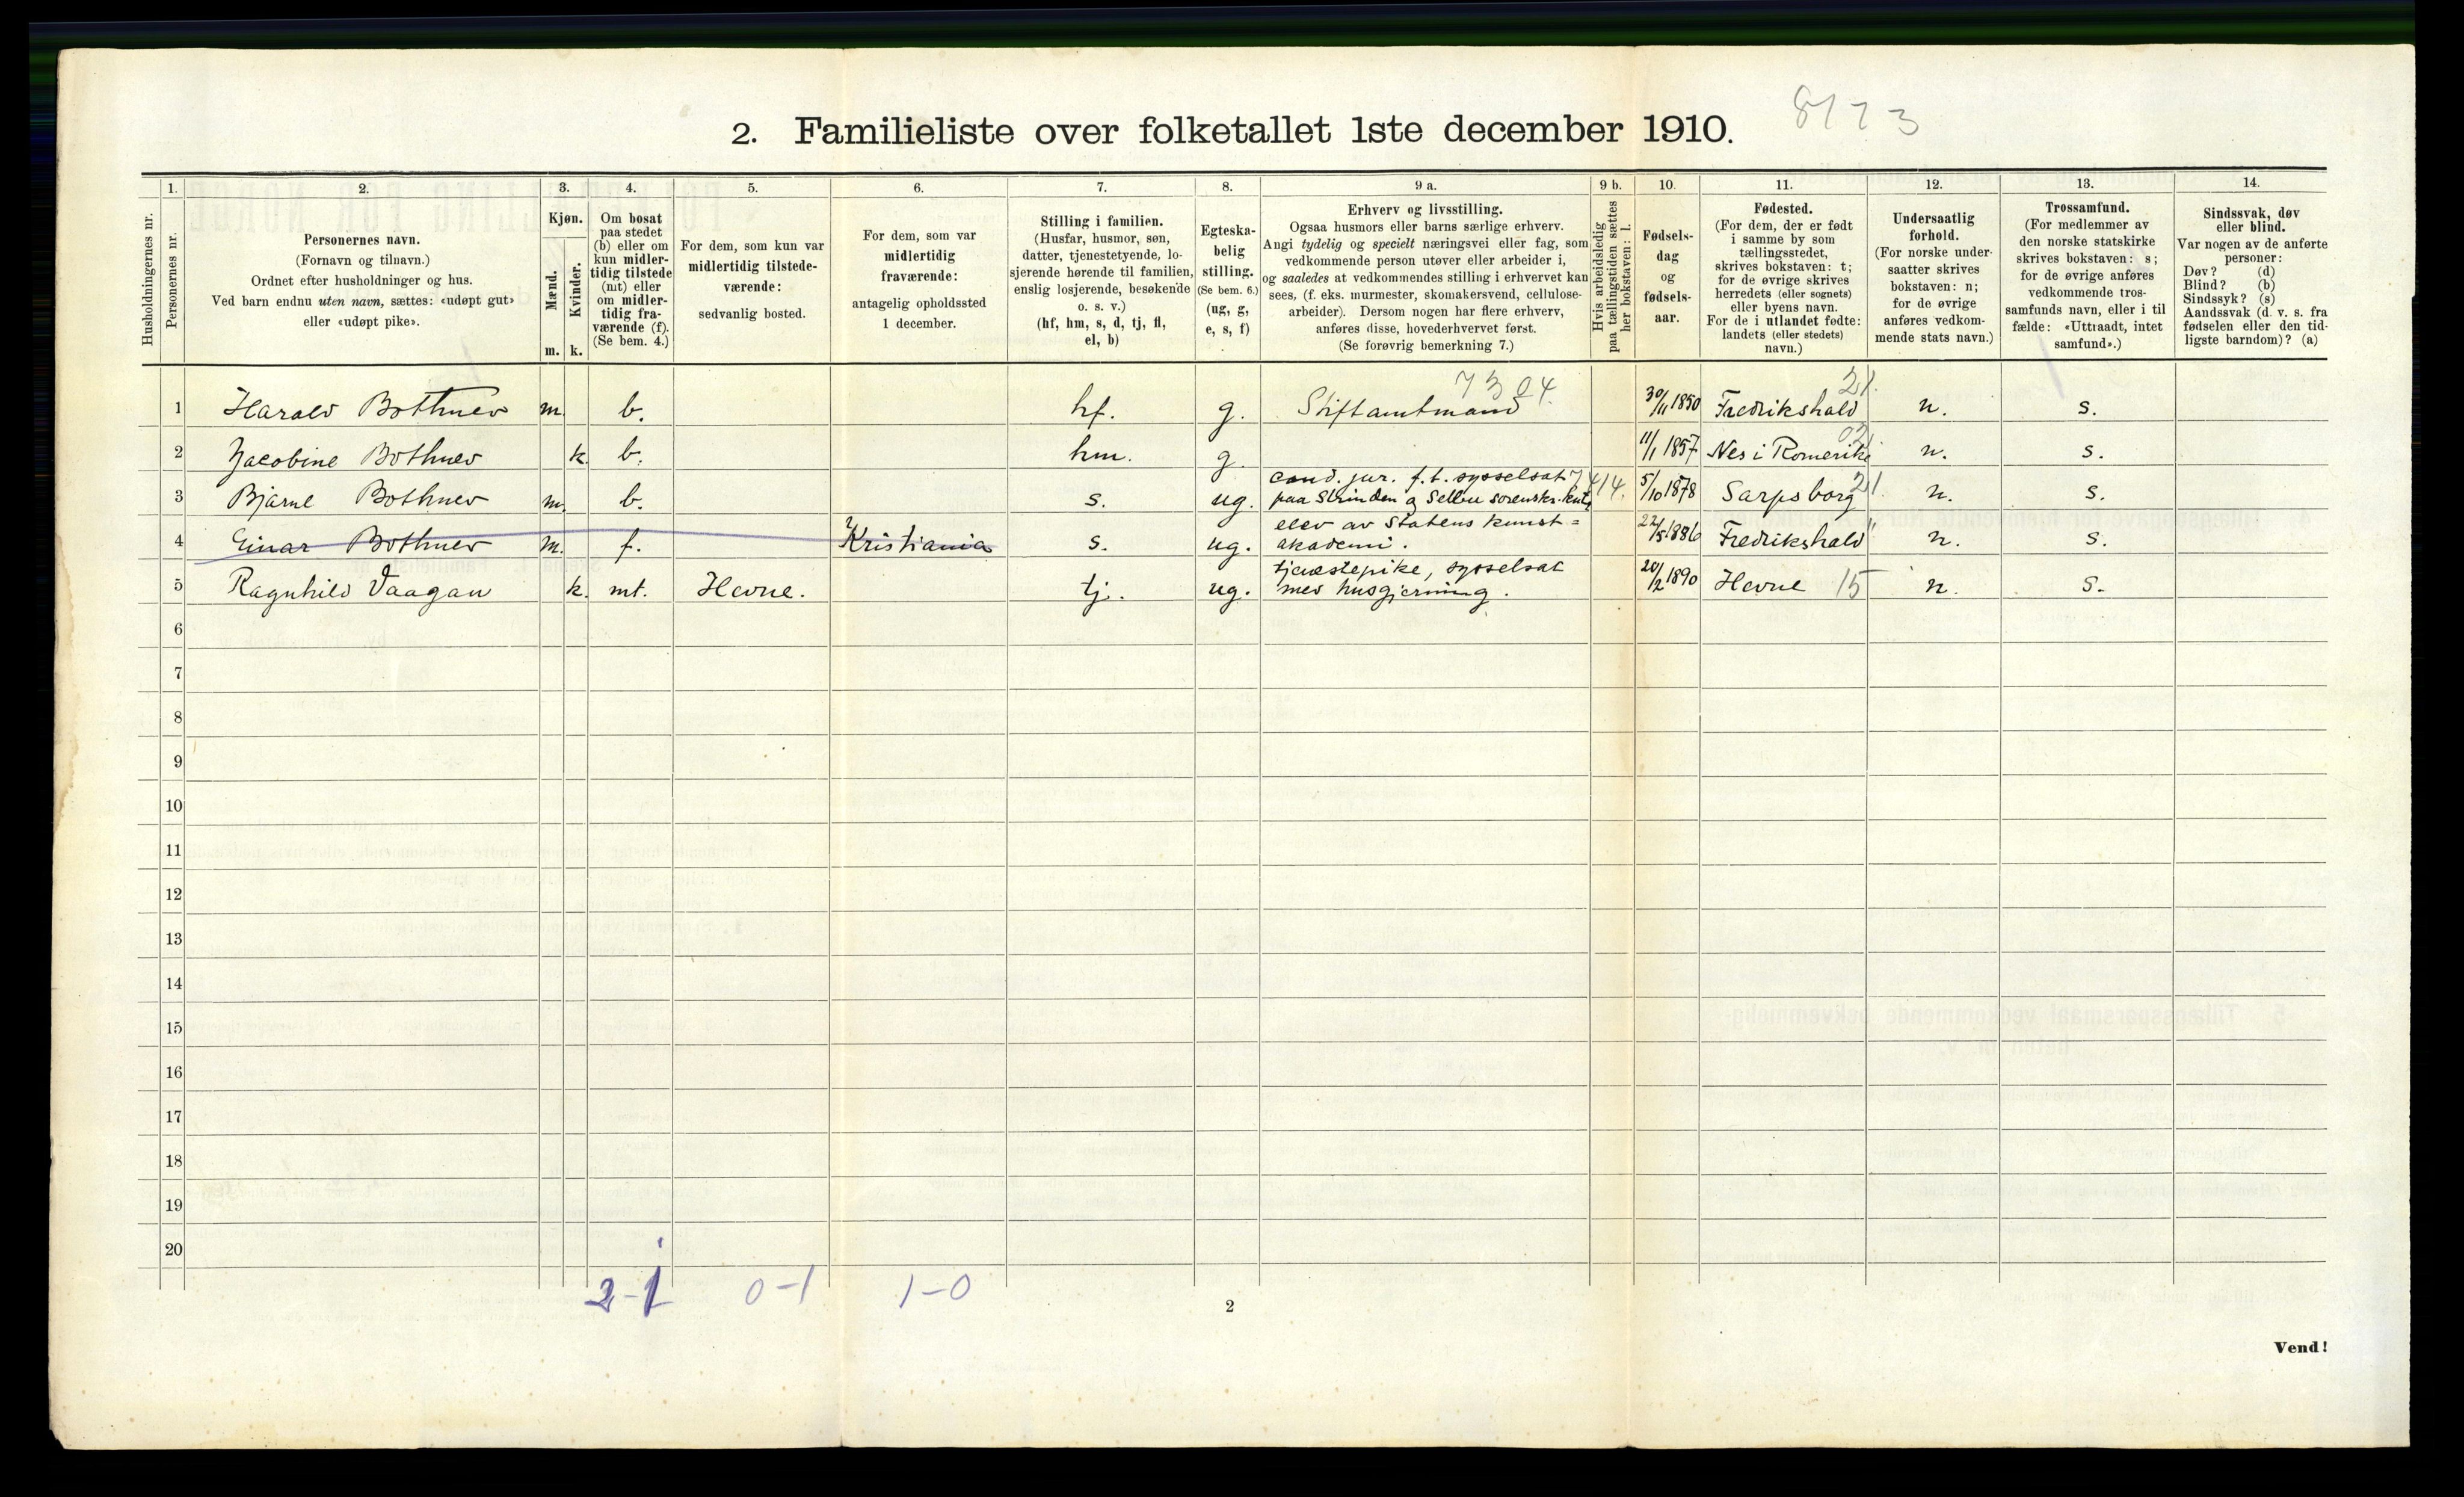 2. Familieliste over folketallet 1ste december 1910.
8173
Husholdningernes nr.
1.
Personernes nr.
2.
Personernes navn.
(Fornavn og tilnavn.)
Ordnet efter husholdninger og hus.
Ved barn endnu uten navn, sættes: «udøpt gut»
eller «udøpt pike».
3.
Kjøn.
Mænd.
Kvinder.
m. k.
4.
Om bosat
paa stedet
(b) eller om
kun midler-
tidig tilstede
(mt) eller
om midler-
tidig fra-
værende (f).
(Se bem. 4.)
5.
For dem, som kun var
midlertidig tilstede-
værende:
sedvanlig bosted.
6.
For dem, som var
midlertidig
fraværende:
antagelig opholdssted
1 december.
7.
Stilling i familien.
(Husfar, husmor, søn,
datter, tjenestetyende, lo-
sjerende hørende til familien,
enslig losjerende, besøkende
o. s. v.)
(hf, hm, s, d, tj, fl,
el, b)
8.
Egteska-
belig
stilling.
(Se bem. 6.)
(ug, g,
e, s, f)
9 a.
Erhverv og livsstilling.
Ogsaa husmors eller barns særlige erhverv.
Angi tydelig og specielt næringsvei eller fag, som
vedkommende person utøver eller arbeider i,
og saaledes at vedkommendes stilling i erhvervet kan
sees, (f. eks. murmester, skomakersvend, cellulose-
arbeider). Dersom nogen har flere erhverv,
anføres disse, hovederhvervet først.
(Se forøvrig bemerkning 7.)
9 b.
Hvis arbeidsledig
paa tællingstiden sættes
her bokstaven: l.
10.
Fødsels-
dag
og
fødsels-
aar.
11.
Fødested.
(For dem, der er født
i samme by som
tællingsstedet,
skrives bokstaven: t;
for de øvrige skrives
herredets (eller sognets)
eller byens navn.
For de i utlandet fødte:
landets (eller stedets)
navn.)
12.
Undersaatlig
forhold.
(For norske under-
saatter skrives
bokstaven: n;
for de øvrige
anføres vedkom-
mende stats navn.)
13.
Trossamfund.
(For medlemmer av
den norske statskirke
skrives bokstaven: s;
for de øvrige anføres
vedkommende tros-
samfunds navn, eller i til
fælde: «Uttraadt, intet
samfund».)
14.
Sindssvak, døv
eller blind.
Var nogen av de anførte
personer:
Døv? (d)
Blind? (b)
Sindssyk? (s)
Aandssvak (d. v. s. fra
fødselen eller den tid-
ligste barndom)? (a)
7304. 21.
1 Harald Bothner m. b. hf. g. Stiftamtmand 30/11 1850 Fredrikshald n. s.
2 Jacobine Bothner k. b. hm. g. 11/1 1857 Nes i Romerike n. s.
cand. jur. f. t. sysselsat 7414.
3 Bjarne Bothner m. b. s. ug. paa Strinden og Selbu sorenskr. kont. 5/10 1878 Sarpsborg 21. n. s.
elev av Statens kunst=
4 Einar Bothner m. f. Kristiania s. ug. akademi. 22/5 1886 Fredrikshald " n. s.
tjenestepike, sysselsat
5 Ragnhild Vaagan k. mt. Hevne. tj. ug. med husgjerning. 20/2 1890 Hevne 15 n. s.
6
7
8
9
10
11
12
13
14
15
16
17
18
19
20
2-1 0-1 1-0
2
Vend!